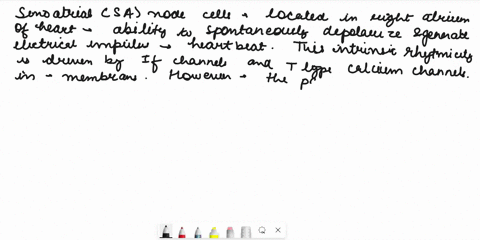 Sinoatrial (SA) node cells - located in right atrium
of heart - ability to spontaneously depolarize & generate
electrical impulse - heart beat. This intrinsic rhythmicity
is driven by If channels and T type calcium channels
in - membrane. However - the p